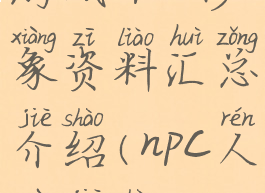 xiàng zī liào huì zǒng
象资料汇总
jiè shào rén
介绍(npc人